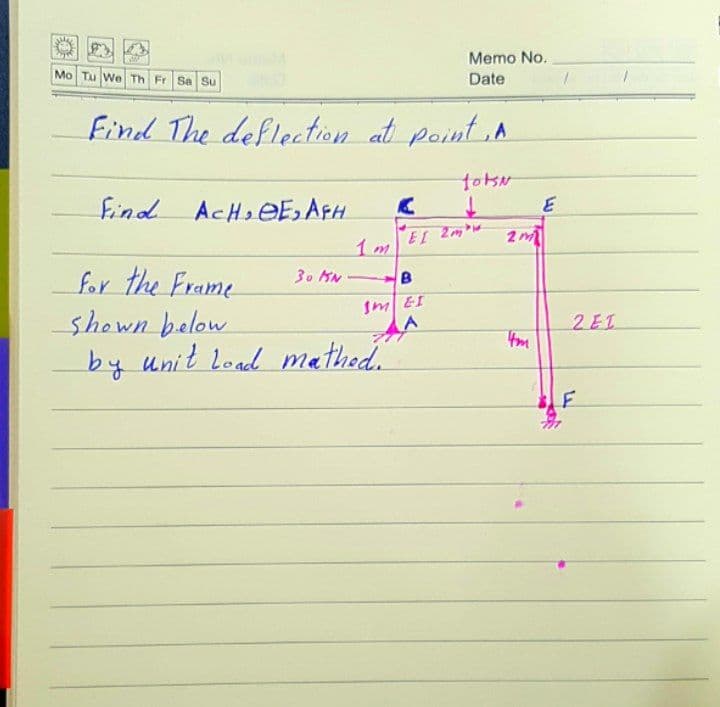 Memo No.
Mo Tu We Th Fr Sa Su
Date / /
Find The deflection at point, A
10KN
Find ΔCH, ΘE, ΔFH
C E
EI 2m 2m
1m
30 KN B
for the Frame
1m EI
shown below
A 2EI
4m
by unit load mathod.
F